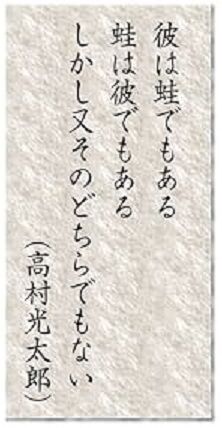 彼は蛙でもある
蛙は彼でもある
しかし又そのどちらでもない
（高村光太郎）